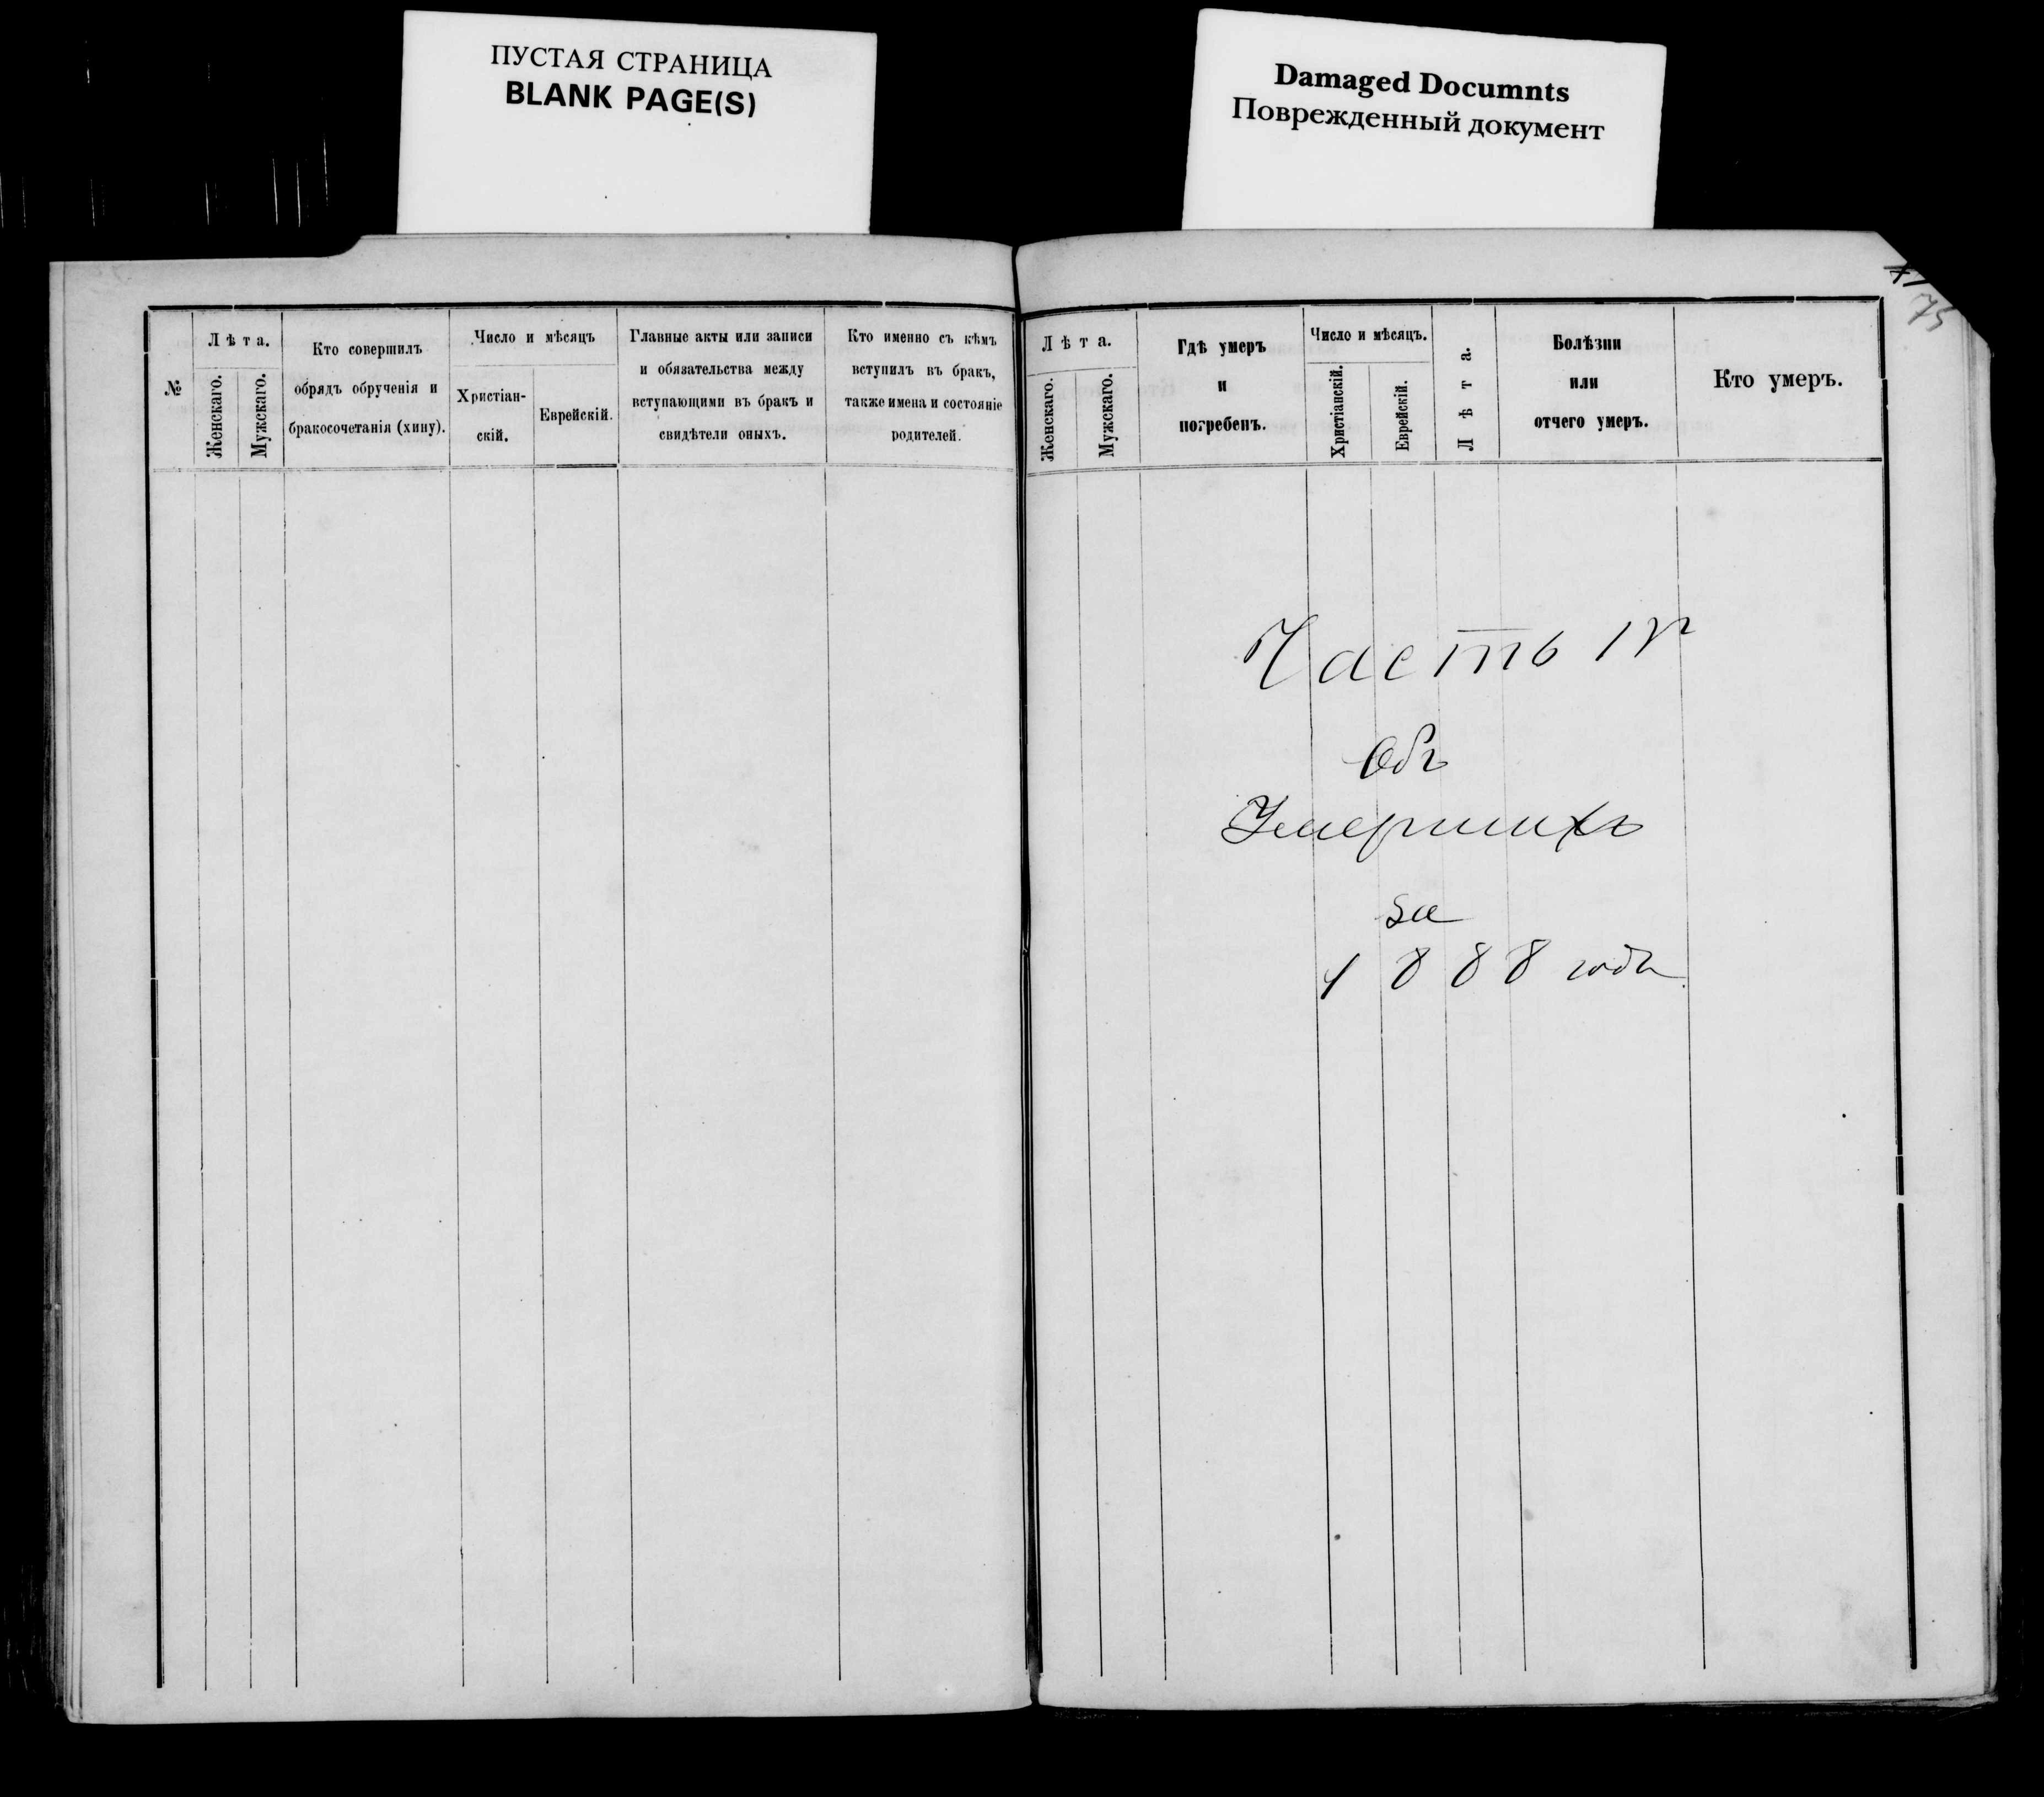 ПУСТАЯ СТРАНИЦА
BLANK PAGE(S)
Damaged Documnts
Поврежденный документ
75
№
Лѣта.
Женскаго.
Мужскаго.
Кто совершилъ
обрядъ обрученія и
бракосочетанія (хину).
Число и мѣсяцъ
Христіан-
скій.
Еврейскій.
Главные акты или записи
и обязательства между
вступающими въ бракъ и
свидѣтели оныхъ.
Кто именно съ кѣмъ
вступилъ въ бракъ,
также имена и состояніе
родителей.
Лѣта.
Женскаго.
Мужскаго.
Гдѣ умеръ
и
погребенъ.
Число и мѣсяцъ.
Христіанскій.
Еврейскій.
Лѣта.
Болѣзни
или
отчего умеръ.
Кто умеръ.
Часть IV
Объ
Умершихъ
за
1888 годъ